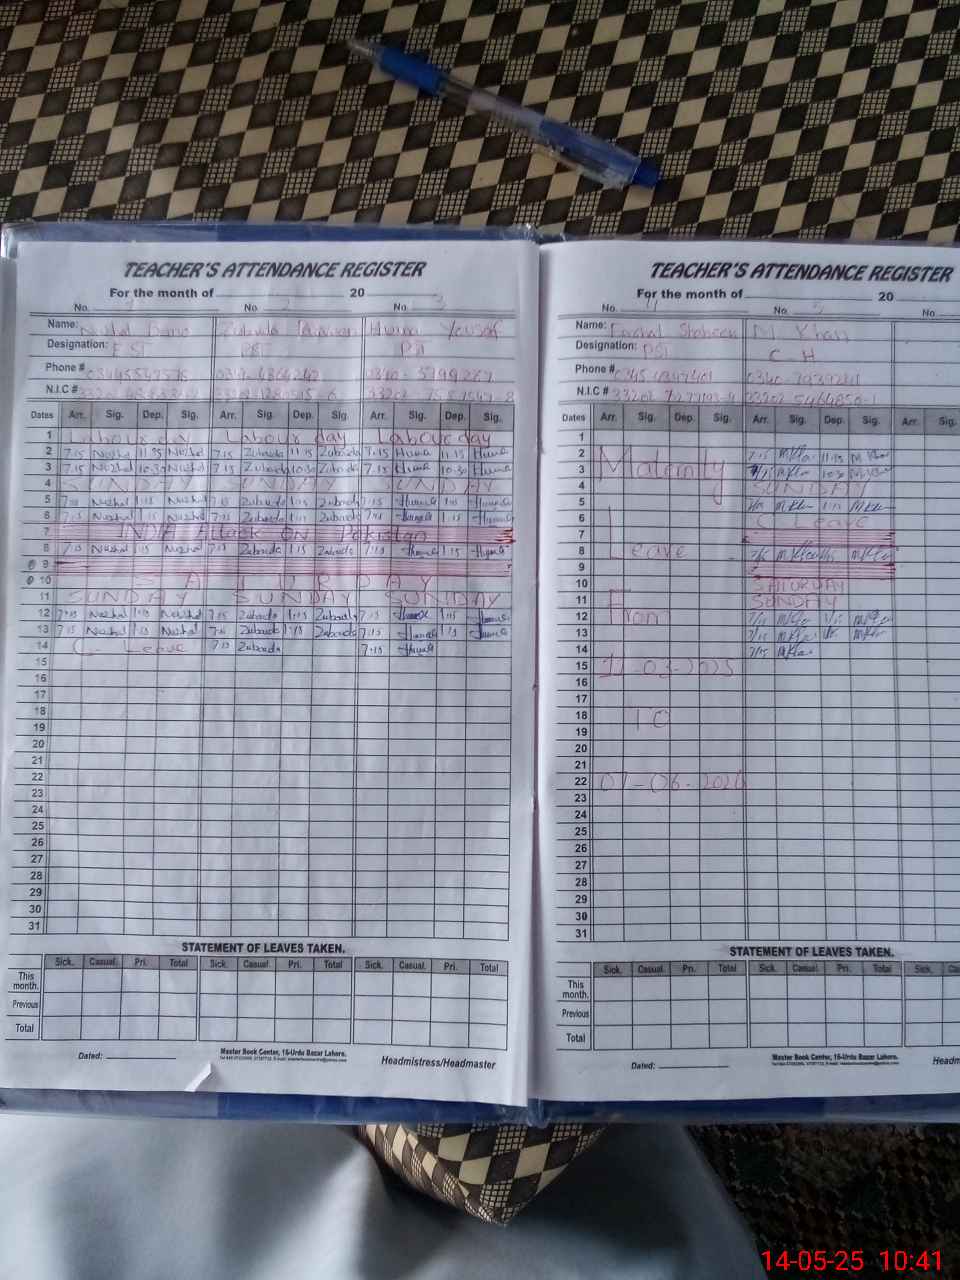 TEACHER'S ATTENDANCE REGISTER
For the month of 20
No. 1 No 2 No. 3
Name: Nuzhat Bano Zubaida Parveen Huma Yousaf
Designation: PST PST PST
Phone #
N.I.C #
Dates Arr. Sig. Dep. Sig. Arr. Sig. Dep. Sig. Arr. Sig. Dep. Sig.
1 Labour day Labour day Labour day
2 7:15 Nuzhat 11:15 Nuzhat 7:15 Zubaida 11:15 Zubaida 7:15 Huma 11:15 Huma
3 7:15 Nuzhat 10:30 Nuzhat 7:15 Zubaida 10:30 Zubaida 7:15 Huma 10:30 Huma
4 SUNDAY SUNDAY SUNDAY
5 7:15 Nuzhat 1:15 Nuzhat 7:15 Zubaida 1:15 Zubaida 7:15 Huma 1:15 Huma
6 7:15 Nuzhat 1:15 Nuzhat 7:15 Zubaida 1:15 Zubaida 7:15 Huma 1:15 Huma
7 INDIA Attack ON Pakistan
8 7:15 Nuzhat 1:15 Nuzhat 7:15 Zubaida 1:15 Zubaida 7:15 Huma 1:15 Huma
9
10 SATURDAY
11 SUNDAY SUNDAY SUNDAY
12 7:15 Nuzhat 1:15 Nuzhat 7:15 Zubaida 1:15 Zubaida 7:15 Huma 1:15 Huma
13 7:15 Nuzhat 1:15 Nuzhat 7:15 Zubaida 1:15 Zubaida 7:15 Huma 1:15 Huma
14 C. Leave 7:15 Zubaida 7:15 Huma
15
16
17
18
19
20
21
22
23
24
25
26
27
28
29
30
31
STATEMENT OF LEAVES TAKEN.
Sick. Casual. Pri. Total Sick. Casual. Pri. Total Sick. Casual. Pri. Total
This month.
Previous
Total
Dated:
Master Book Center, 16-Urdu Bazar Lahore.
Headmistress/Headmaster
TEACHER'S ATTENDANCE REGISTER
For the month of 20
No. 4 No 5 No.
Name: Shaheen M. Khan
Designation: PST C H
Phone #
N.I.C #
Dates Arr. Sig. Dep. Sig. Arr. Sig. Dep. Sig. Arr. Sig.
1
2 7:15 M Khan 11:15 M Khan
3 Maternity 7:15 M Khan 10:30 M Khan
4 SUNDAY
5 7:15 M Khan 1:15 M Khan
6 C Leave
7
8 Leave 7:15 M Khan M Khan
9
10 SATURDAY
11 SUNDAY
12 From 7:15 M Khan 1:15 M Khan
13 7:15 M Khan M Khan
14 7:15 M Khan
15 -03-2025
16
17
18 TO
19
20
21
22 01-06-202
23
24
25
26
27
28
29
30
31
STATEMENT OF LEAVES TAKEN.
Sick. Casual. Pri. Total Sick. Casual. Pri. Total Sick.
This month.
Previous
Total
Dated:
Master Book Center, 16-Urdu Bazar Lahore.
14-05-25 10:41